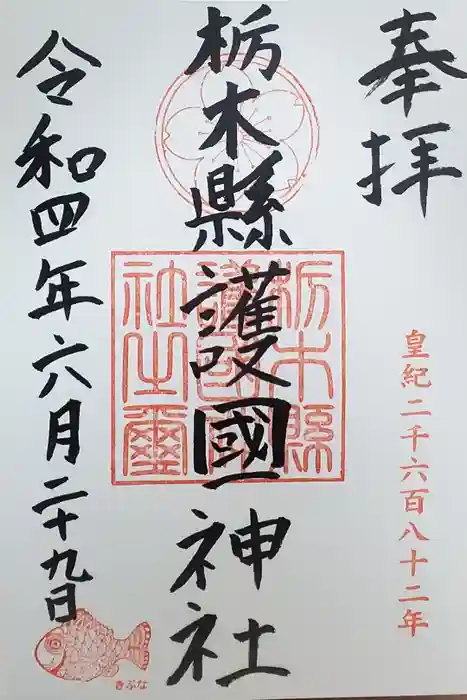 奉拝
皇紀二千六百八十二年
栃木縣護國神社
栃木縣護國神社之璽
令和四年六月二十九日
きぶな